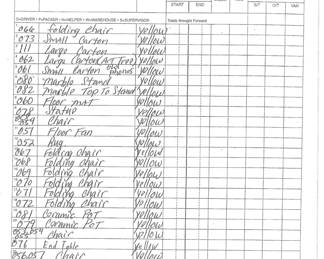 START END S/T O/T VAN
D=DRIVER P=PACKER H=HELPER W=WAREHOUSE S=SUPERVISOR Totals Brought Forward
066 folding chair yellow
073 Small Carton yellow
111 Large Carton yellow
062 Large Carton (Art Tree) yellow
061 Small Carton old phones yellow
080 marble Stand yellow
082 marble Top To Stand yellow
060 Floor mat yellow
078 Statue yellow
054 Chair yellow
051 Floor Fan yellow
052 Rug yellow
067 Folding Chair yellow
068 Folding Chair yellow
069 Folding Chair yellow
070 Folding Chair yellow
071 Folding Chair yellow
072 Folding Chair yellow
081 Ceramic Pot yellow
079 Ceramic Pot yellow
055 Chair yellow
076 End Table yellow
056,057 Chair yellow